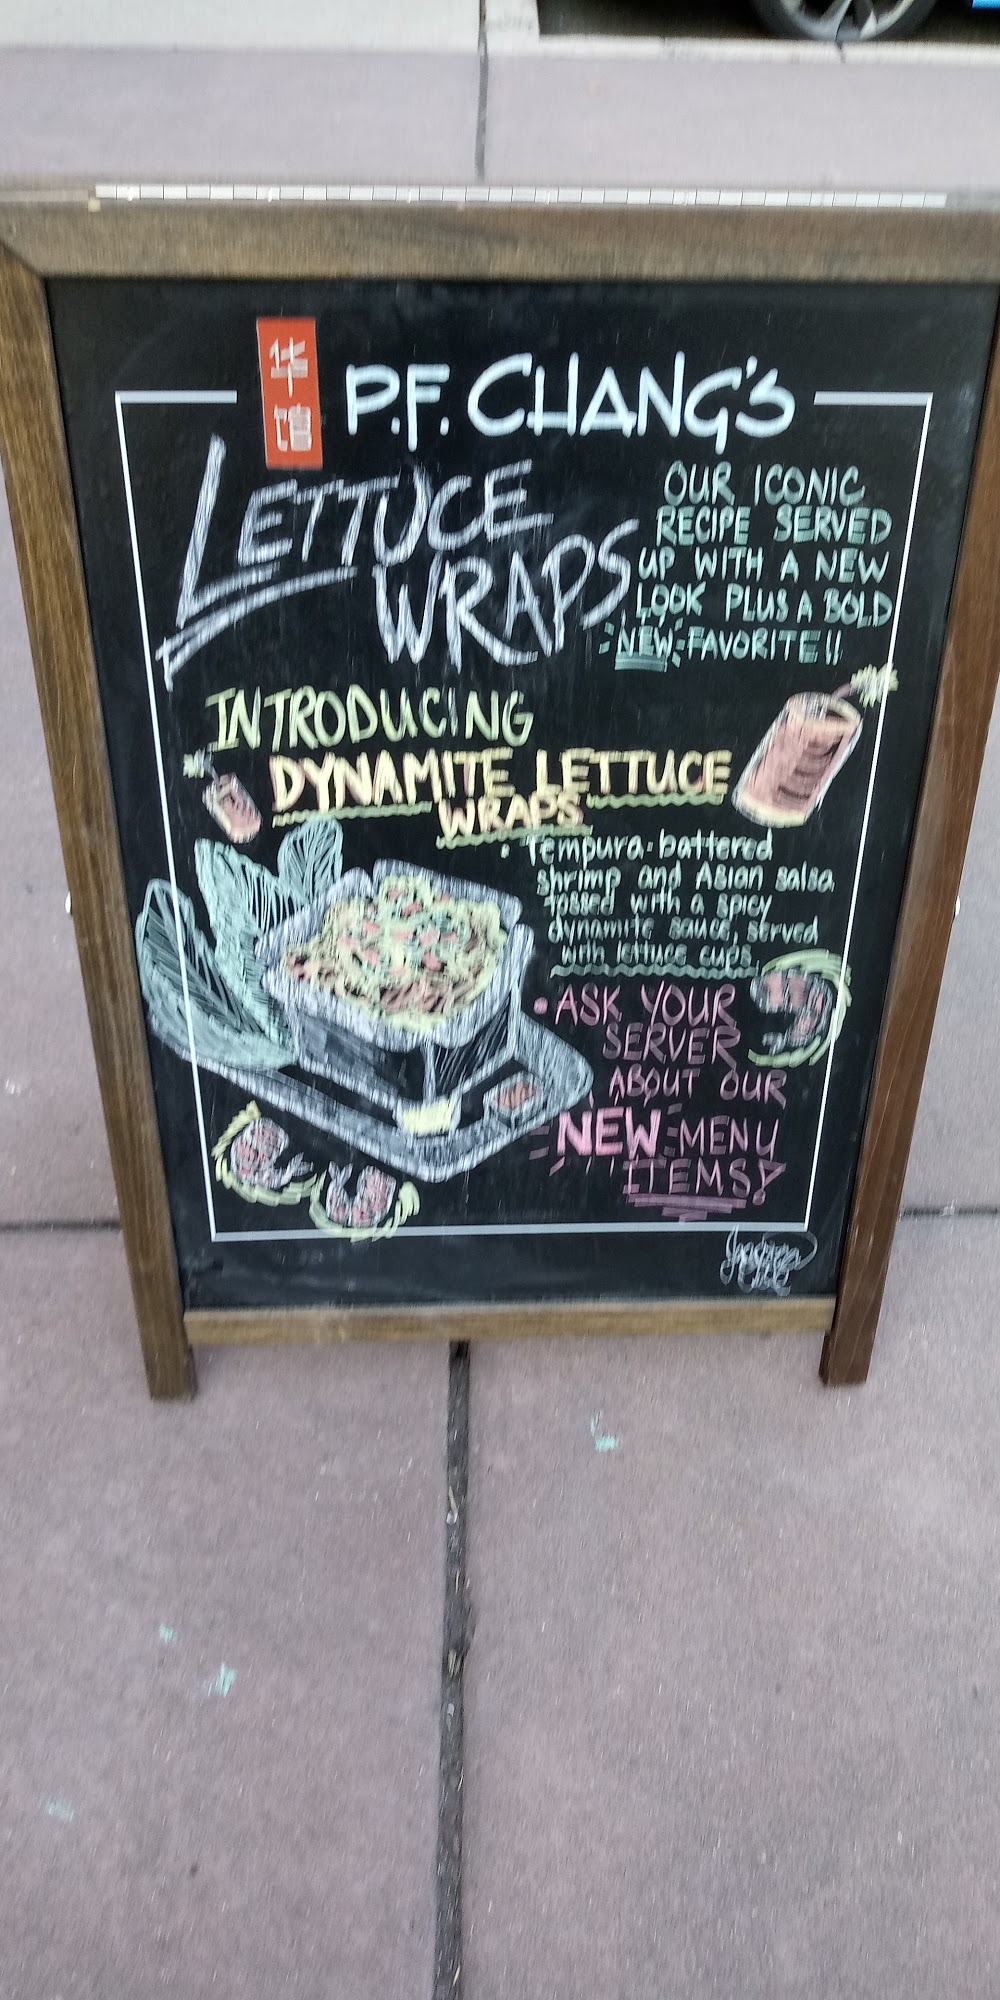 华馆
P.F. CHANG'S
LETTUCE
WRAPS
OUR ICONIC
RECIPE SERVED
UP WITH A NEW
LOOK PLUS A BOLD
NEW FAVORITE!!
INTRODUCING
DYNAMITE LETTUCE
WRAPS
• Tempura-battered
shrimp and Asian salsa
tossed with a spicy
dynamite sauce, served
with lettuce cups.
• ASK YOUR
SERVER
ABOUT OUR
NEW MENU
ITEMS!